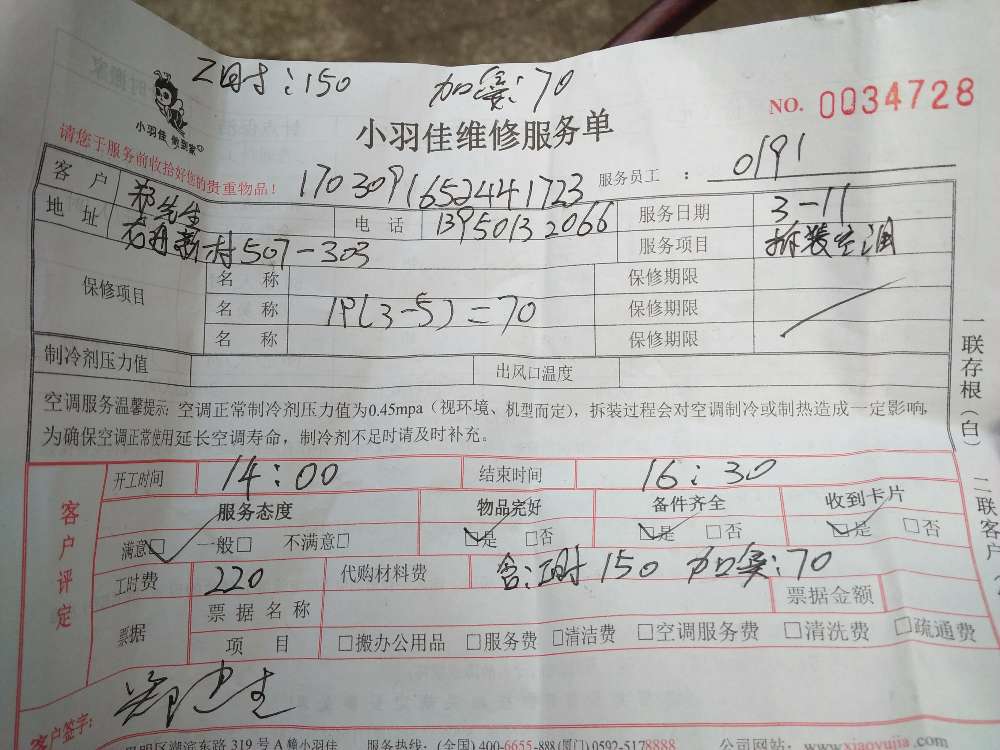 工时：150 加氟：70
NO. 0034728
小羽佳 做到家
小羽佳维修服务单
请您于服务前收拾好您的贵重物品！
1703091652441723 服务员工 ： 0191
客户 郑先生 电话 13950132066 服务日期 3-11
地址 新村507-303 服务项目 拆装空调
保修项目 名称 保修期限
名称 1P(3-5)=70 保修期限
名称 保修期限
制冷剂压力值 出风口温度
空调服务温馨提示: 空调正常制冷剂压力值为0.45mpa（视环境、机型而定），拆装过程会对空调制冷或制热造成一定影响，
为确保空调正常使用延长空调寿命，制冷剂不足时请及时补充。
一联存根（白） 二联客户
客户评定
开工时间 14:00 结束时间 16:30
服务态度 物品完好 备件齐全 收到卡片
满意☑ 一般□ 不满意□ ☑是 □否 ☑是 □否 ☑是 □否
工时费 220 代购材料费 含：工时150 加氟：70
票据 票据名称 票据金额
项目 □搬办公用品 □服务费 □清洁费 □空调服务费 □清洗费 □疏通费
客户签字：
明区湖滨东路 319 号 A 幢小羽佳 服务热线：(全国) 400-6655-888 (厦门) 0592-5178888 公司网站：www.xiaoyujia.com